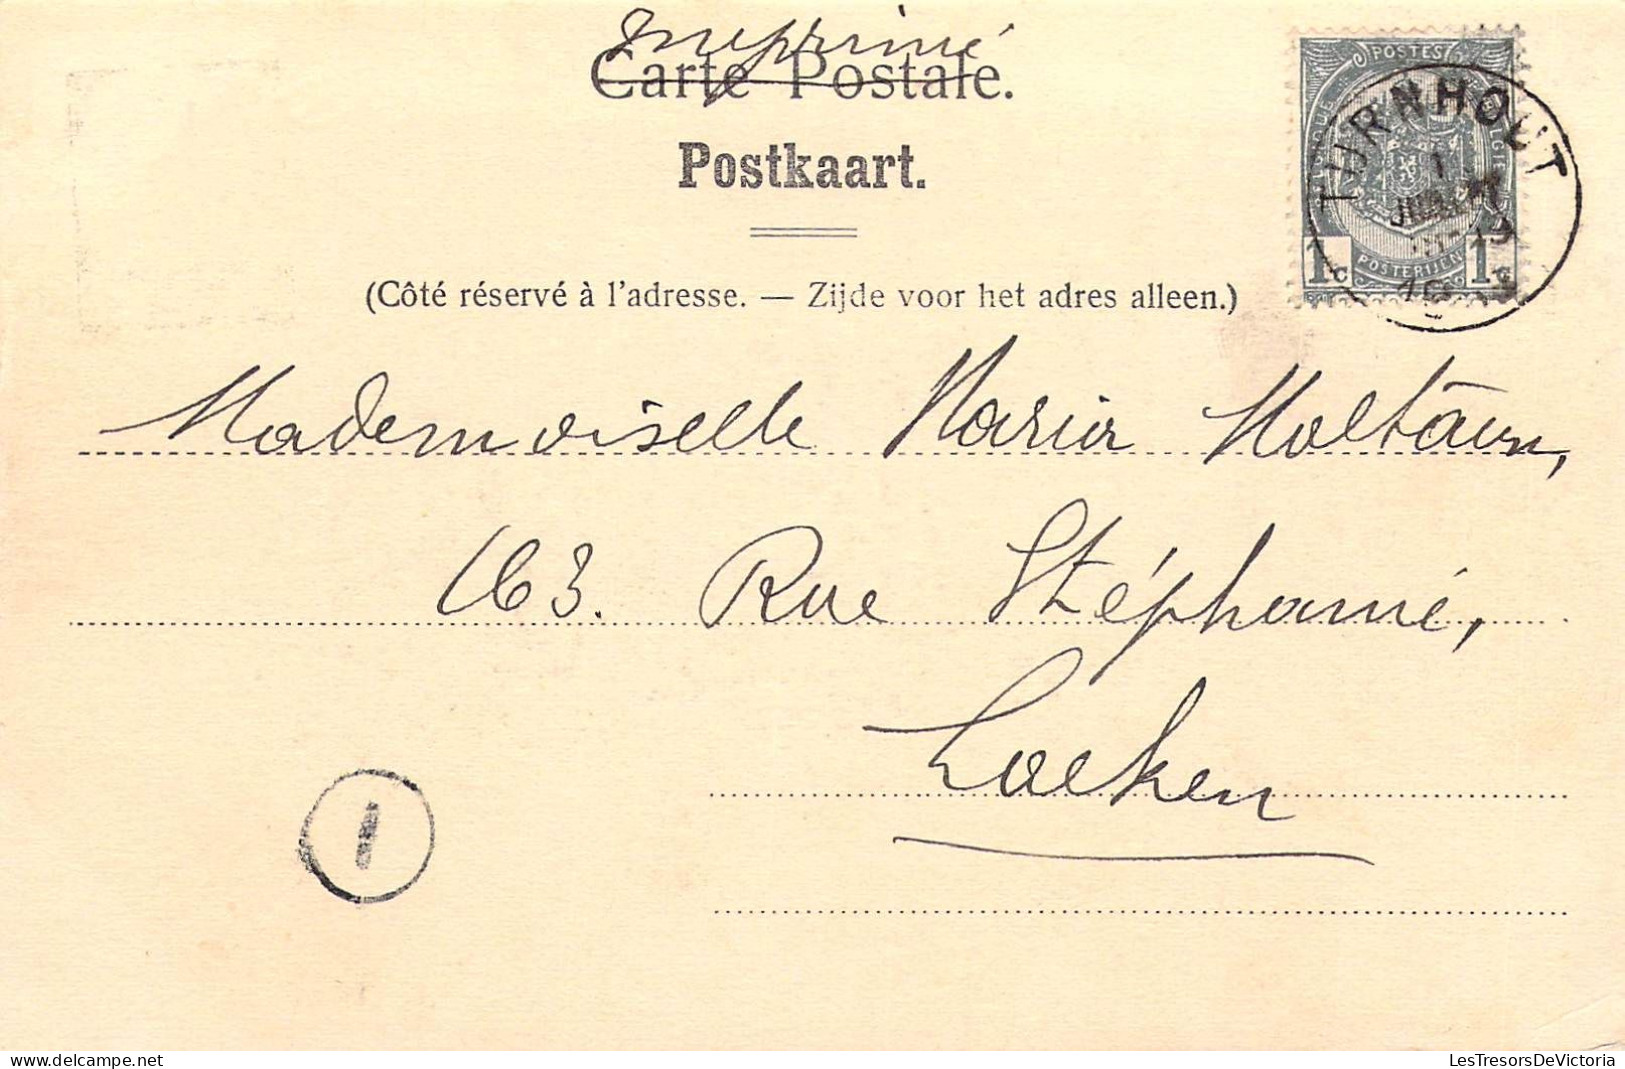 Imprimé
Carte Postale.
Postkaart.
(Côté réservé à l'adresse. — Zijde voor het adres alleen.)
POSTES
BELGIË
POSTERIJEN
1c
1c
TURNHOUT
1
JUILLET
Mademoiselle Maria
163. Rue Stéphanie,
Laeken
1
LesTresorsDeVictoria
delcampe.net